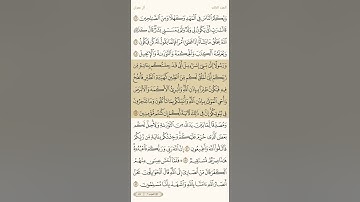 آل عمران الجزء الثالث
وَيُكَلِّمُ ٱلنَّاسَ فِي ٱلْمَهْدِ وَكَهْلًا وَمِنَ ٱلصَّٰلِحِينَ ٤٦
قَالَتْ رَبِّ أَنَّىٰ يَكُونُ لِي وَلَدٌ وَلَمْ يَمْسَسْنِي بَشَرٌ قَالَ كَذَٰلِكِ
ٱللَّهُ يَخْلُقُ مَا يَشَآءُ إِذَا قَضَىٰٓ أَمْرًا فَإِنَّمَا يَقُولُ لَهُۥ كُن فَيَكُونُ ٤٧
وَيُعَلِّمُهُ ٱلْكِتَٰبَ وَٱلْحِكْمَةَ وَٱلتَّوْرَىٰةَ وَٱلْإِنجِيلَ ٤٨
وَرَسُولًا إِلَىٰ بَنِيٓ إِسْرَٰٓءِيلَ أَنِّي قَدْ جِئْتُكُم بِـَٔايَةٍ مِّن
رَّبِّكُمْ أَنِّيٓ أَخْلُقُ لَكُم مِّنَ ٱلطِّينِ كَهَيْـَٔةِ ٱلطَّيْرِ فَأَنفُخُ
فِيهِ فَيَكُونُ طَيْرًۢا بِإِذْنِ ٱللَّهِ وَأُبْرِئُ ٱلْأَكْمَهَ وَٱلْأَبْرَصَ
وَأُحْيِ ٱلْمَوْتَىٰ بِإِذْنِ ٱللَّهِ وَأُنَبِّئُكُم بِمَا تَأْكُلُونَ وَمَا تَدَّخِرُونَ
فِي بُيُوتِكُمْ إِنَّ فِي ذَٰلِكَ لَـَٔايَةً لَّكُمْ إِن كُنتُم مُّؤْمِنِينَ ٤٩
وَمُصَدِّقًا لِّمَا بَيْنَ يَدَيَّ مِنَ ٱلتَّوْرَىٰةِ وَلِأُحِلَّ لَكُم
بَعْضَ ٱلَّذِي حُرِّمَ عَلَيْكُمْ وَجِئْتُكُم بِـَٔايَةٍ مِّن رَّبِّكُمْ
فَٱتَّقُوا۟ ٱللَّهَ وَأَطِيعُونِ ٥٠ إِنَّ ٱللَّهَ رَبِّي وَرَبُّكُمْ فَٱعْبُدُوهُ
هَٰذَا صِرَٰطٌ مُّسْتَقِيمٌ ٥١ فَلَمَّآ أَحَسَّ عِيسَىٰ مِنْهُمُ
ٱلْكُفْرَ قَالَ مَنْ أَنصَارِيٓ إِلَى ٱللَّهِ قَالَ ٱلْحَوَارِيُّونَ نَحْنُ
أَنصَارُ ٱللَّهِ ءَامَنَّا بِٱللَّهِ وَٱشْهَدْ بِأَنَّا مُسْلِمُونَ ٥٢